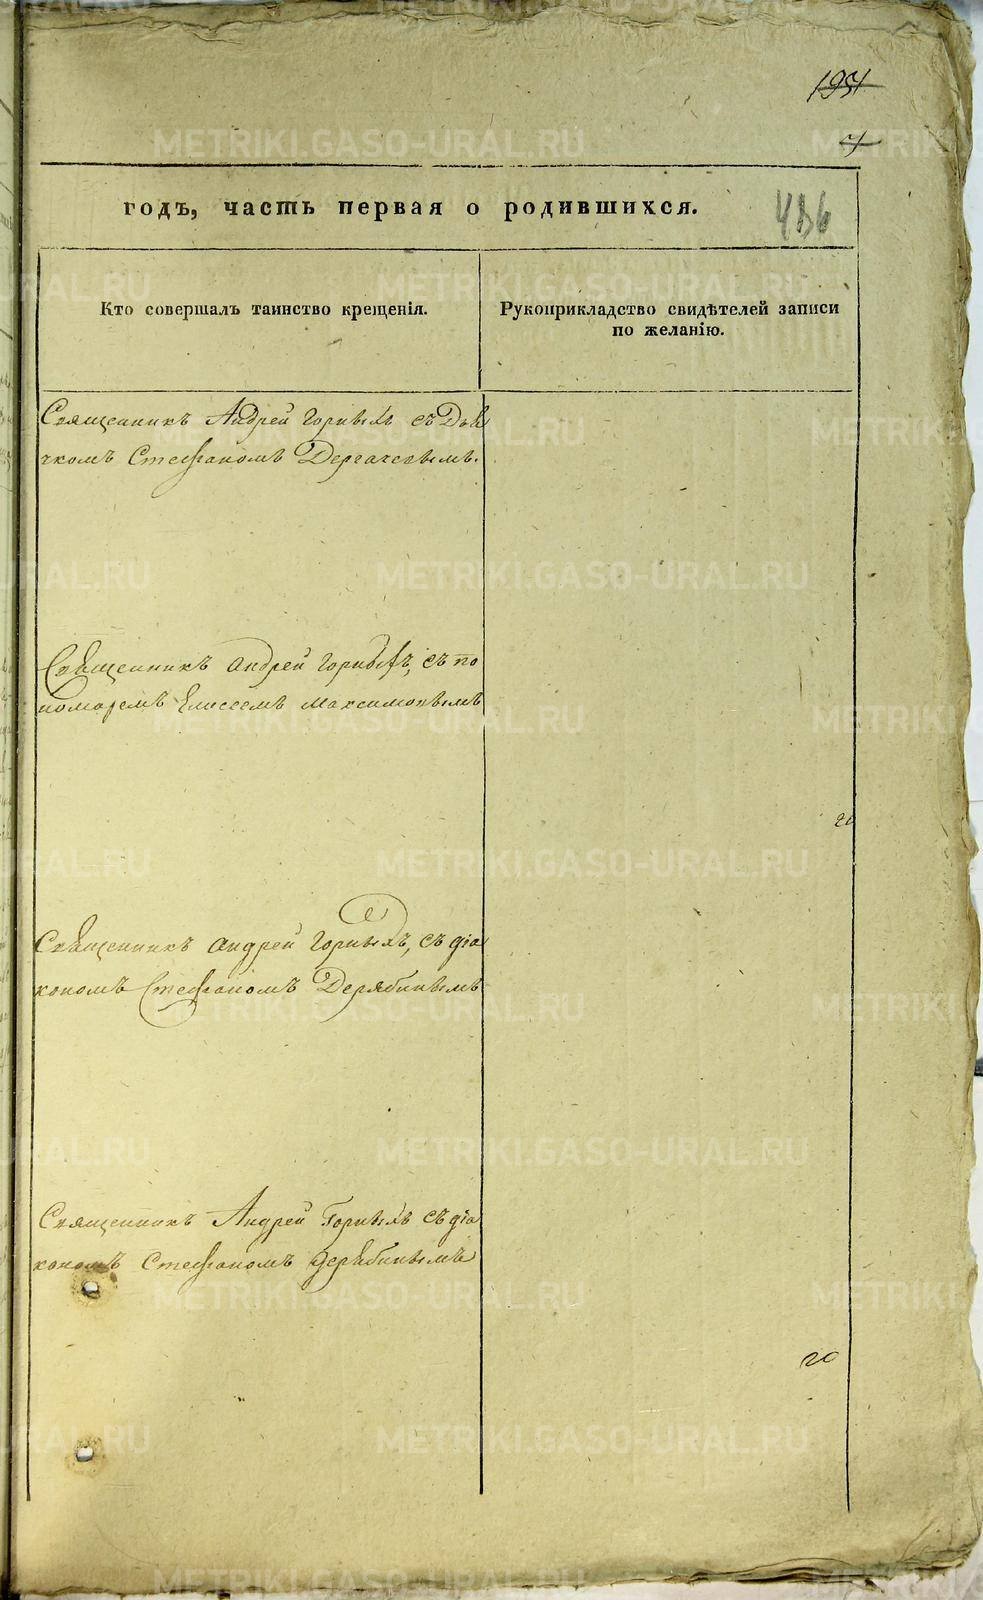 195
436
годъ, часть первая о родившихся.
Кто совершалъ таинство крещенія.
Рукоприкладство свидѣтелей записи
по желанію.
Священникъ Андрей Горныхъ съ Дья
чкомъ Стефаномъ Дергачевымъ.
Священникъ Андрей Горныхъ, съ по
номаремъ Елисеемъ Максимовымъ
Священникъ Андрей Горныхъ, съ діа
кономъ Стефаномъ Дерябинымъ
Священникъ Андрей Горныхъ съ діа
кономъ Стефаномъ Дерябинымъ
20
METRIKI.GASO-URAL.RU